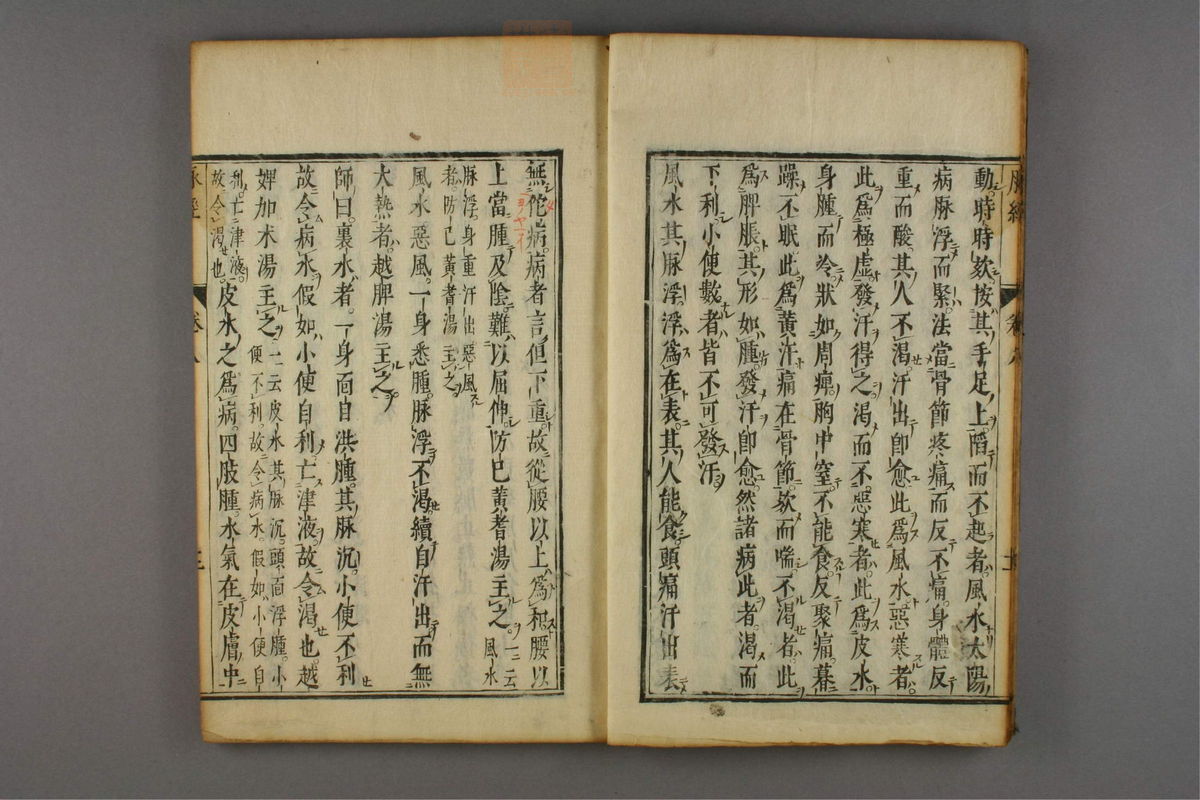 動時時欬按其手足上陷而不起者風水太陽
病脉浮而緊法當骨節疼痛而反不痛身體反
重而酸其人不渴汗出卽愈此爲風水惡寒者
此爲極虛發汗得之渴而不惡寒者此爲皮水
身腫而冷狀如周痺胸中窒不能食反聚痛暮
躁不眠此爲黃汗痛在骨節欬而喘不渴者此
爲脾脹其形如腫發汗卽愈然諸病此者渴而
下利小便數者皆不可發汗
風水其脉浮浮爲在表其人能食頭痛汗出表
無佗病病者言但下重故從腰以上爲和腰以
上當腫及陰難以屈伸防已黃耆湯主之一云風水
脉浮身重汗出惡風者防已黃耆湯主之
風水惡風一身悉腫脉浮不渴續自汗出而無
大熱者越脾湯主之
師曰裏水者一身面目洪腫其脉沉小便不利
故令病水假如小便自利亡津液故令渴也越
婢加术湯主之一云皮水其脉沉頭面浮腫小便不利故令病水假如小便自
利亡津液故令渴也皮水之爲病四肢腫水氣在皮膚中
脉經
卷八